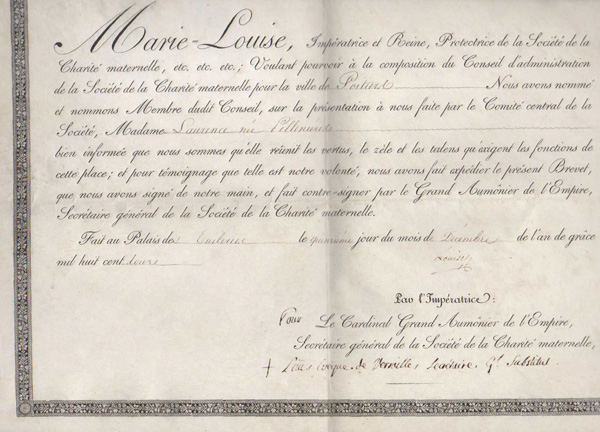 Marie-Louise, Impératrice et Reine, Protectrice de la Société de la
Charité maternelle, etc. etc. etc.; Voulant pourvoir à la composition du Conseil d'administration
de la Société de la Charité maternelle pour la ville de Nous avons nommé
et nommons Membre dudit Conseil, sur la présentation à nous faite par le Comité central de la
Société, Madame née
bien informée que nous sommes qu'elle réunit les vertus, le zèle et les talens qu'exigent les fonctions de
cette place; et pour témoignage que telle est notre volonté, nous avons fait expédier le présent Brevet,
que nous avons signé de notre main, et fait contre-signer par le Grand Aumônier de l'Empire,
Secrétaire général de la Société de la Charité maternelle.
Fait au Palais des Tuileries le quinzième jour du mois de Décembre de l'an de grâce
mil huit cent douze
Par l'Impératrice:
Pour Le Cardinal Grand Aumônier de l'Empire,
Secrétaire général de la Société de la Charité maternelle,
+ évêque de Secrétaire Gl Substitut